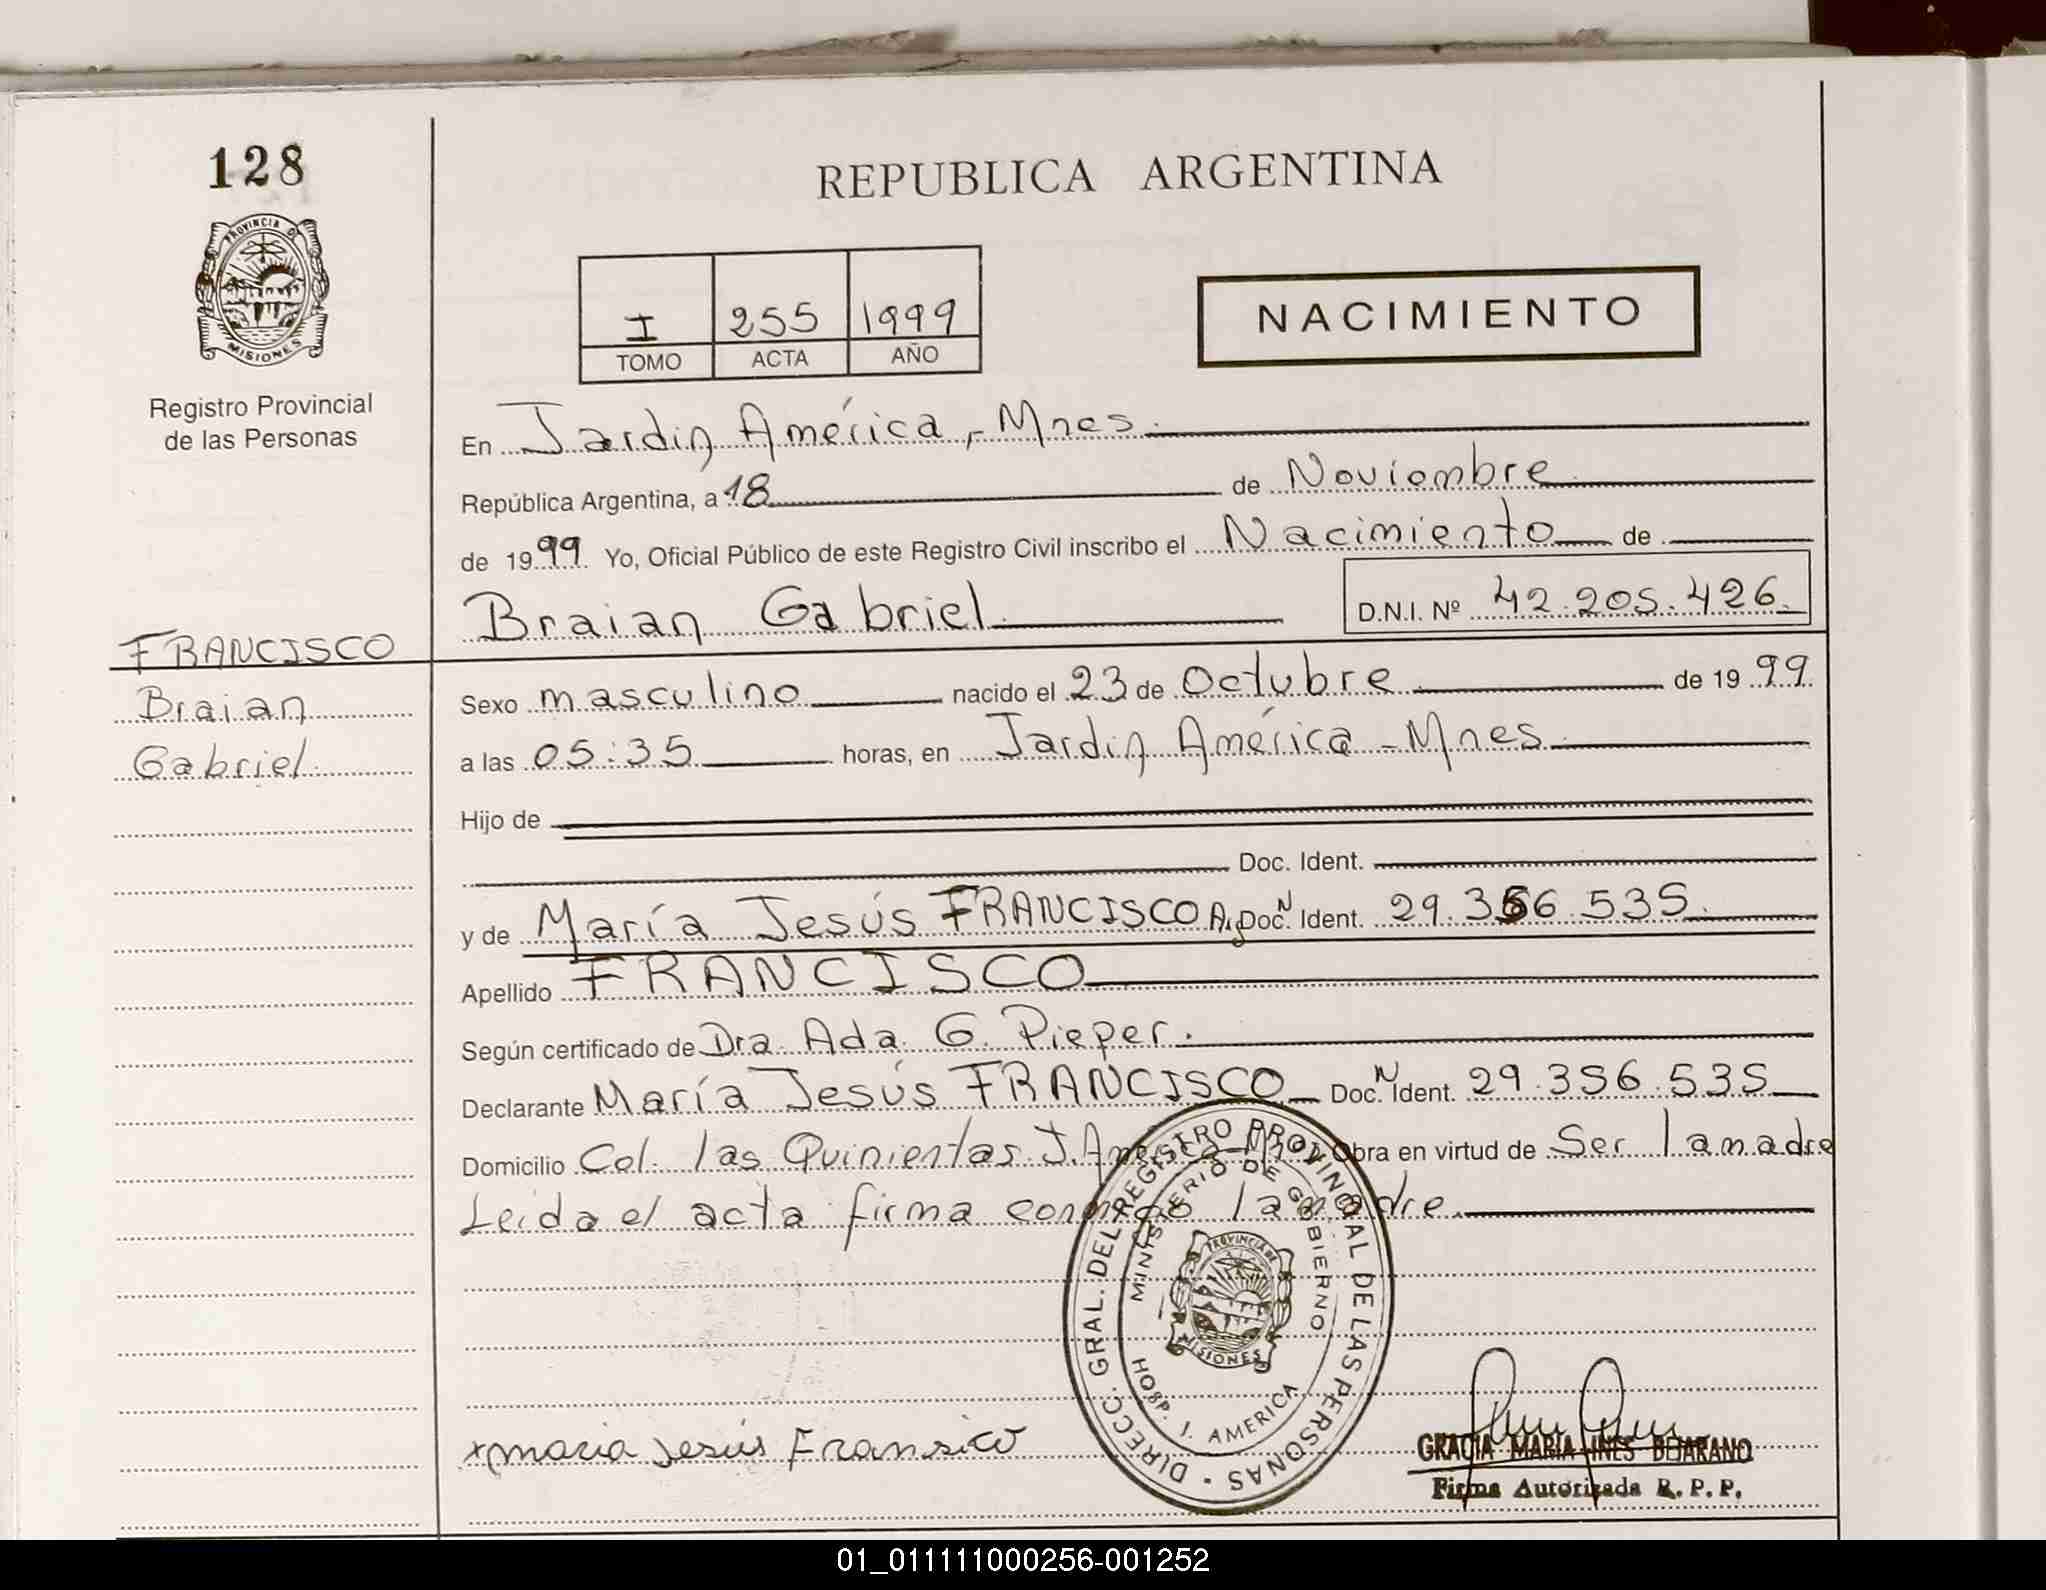 128
PROVINCIA D
MISIONES
Registro Provincial
de las Personas
REPUBLICA ARGENTINA
I 255 1999
TOMO ACTA AÑO
NACIMIENTO
En Jardin América, Mnes.
República Argentina, a 18 de Noviembre
de 1999 Yo, Oficial Público de este Registro Civil inscribo el Nacimiento de
Braian Gabriel D.N.I. Nº 42.205.426
FRANCISCO
Braian
Gabriel
Sexo masculino nacido el 23 de Octubre de 1999
a las 05:35 horas, en Jardin América - Mnes
Hijo de
Doc. Ident.
y de María Jesús FRANCISCO Arg Doc. N Ident. 29.356.535
Apellido FRANCISCO
Según certificado de Dra Ada G. Pieper.
Declarante María Jesús FRANCISCO Doc. N Ident. 29.356.535
Domicilio Col. las Quinientas J. América Mnes Obra en virtud de Ser la madre
Leida el acta firma conmigo la madre.
DIRECC. GRAL. DEL REGISTRO PROVINCIAL DE LAS PERSONAS
MINISTERIO DE GOBIERNO
PROVINCIA DE
MISIONES
HOSP. J. AMERICA
x maria Jesús Fransico
GRACIA MARIA INES BEJARANO
Firma Autorizada R. P. P.
01_011111000256-001252